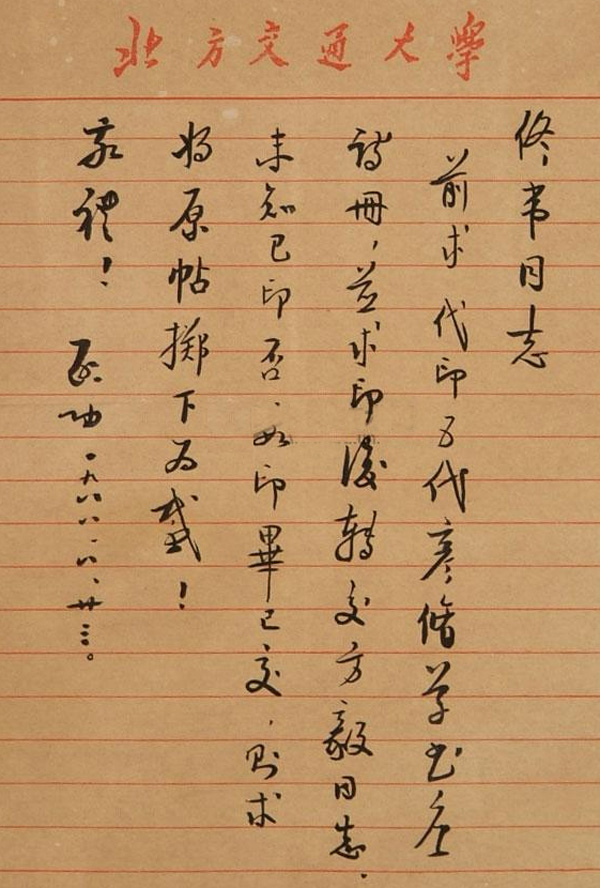 北方交通大學
佟韦同志
前求 代印五代彥脩草書
詩冊，並求印後轉交方毅同志．
未知已印否．如印畢已交．則求
將原帖擲下为感！
敬禮！ 啟功 一九八八．八、廿三。